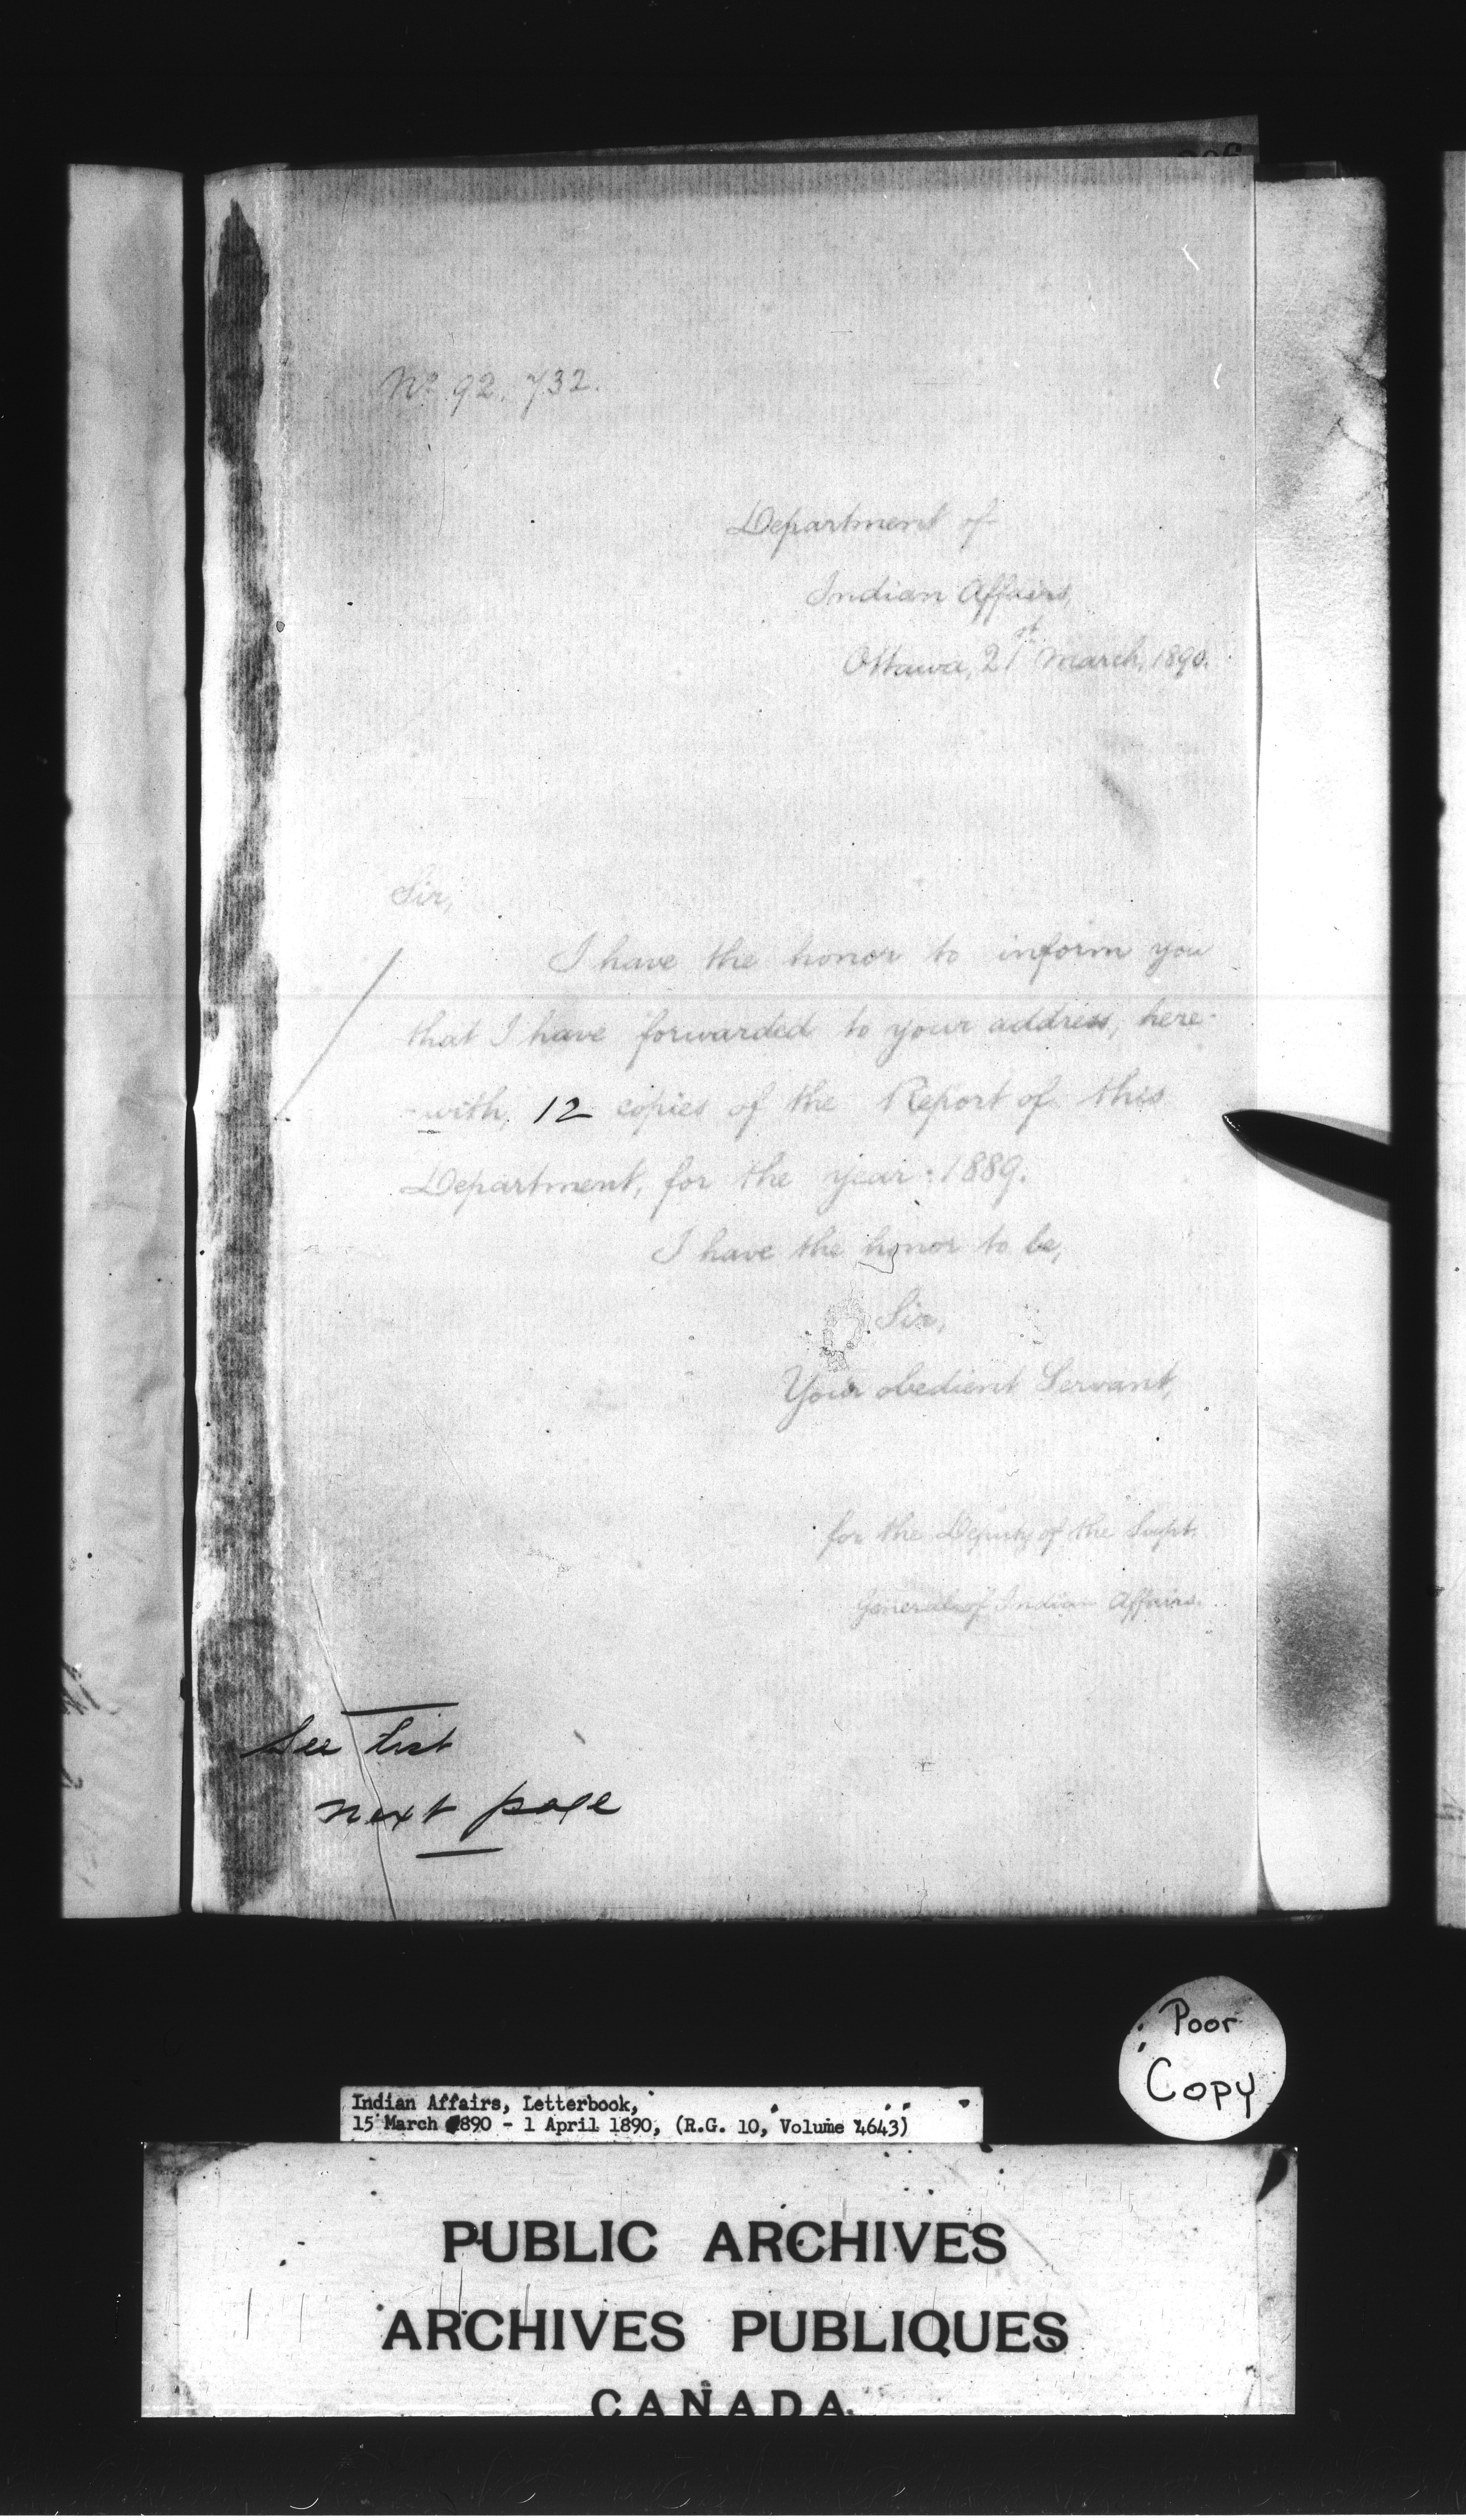 No 92.732.
Department of
Indian Affairs,
Ottawa, 21st March, 1890.
Sir,
I have the honor to inform you
that I have forwarded to your address, here-
-with, 12 copies of the Report of this
Department, for the year : 1889.
I have the honor to be,
Sir,
Your obedient Servant,
for the Deputy of the Supt.
General of Indian Affairs.
See list
next page
Poor
Copy
Indian Affairs, Letterbook,
15 March 1890 - 1 April 1890, (R.G. 10, Volume 4643)
PUBLIC ARCHIVES
ARCHIVES PUBLIQUES
CANADA